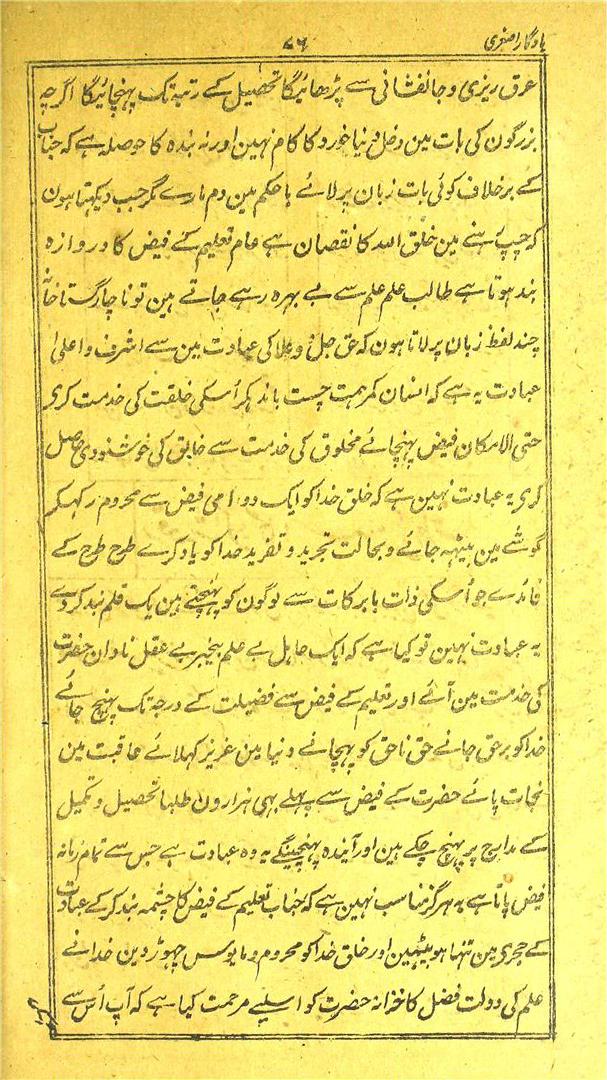 یادگار اصغری
۷۶
عرق ریزی و جانفشانی سے پڑھائیگا تحصیل کے رتبہ تک پہنچائیگا اگرچہ
بزرگون کی بات مین دخل دنیا خورد کا کام نہین اور نہ بندہ کا حوصلہ ہے کہ جناب
کے برخلاف کوئی بات زبان پر لائے یا حکم مین دم مارے مگر جب دیکھتا ہون
کہ چپ رہنے مین خلق اللہ کا نقصان ہے عام تعلیم کے فیض کا دروازہ
بند ہوتا ہے طالب علم علم سے بے بہرہ رہے جاتے ہین تو ناچار گستاخانہ
چند لفظ زبان پر لاتا ہون کہ حق جل و علا کی عبادت مین سے اشرف و اعلیٰ
عبادت یہ ہے کہ انسان کمر ہمت چست باندہکر اُسکی خلقت کی خدمت کری
حتی الامکان فیض پہنچائے مخلوق کی خدمت سے خالق کی خوشنودی حاصل
کری یہ عبادت نہین ہے کہ خلق خدا کو ایک دوامی فیض سے محروم رکہکر
گوشے مین بیٹہہ جائے و بحالت تجرید و تفرید خدا کو یاد کرے طرح طرح کے
فائدے جو اُسکی ذات بابرکات سے لوگون کو پہنچتے ہین یک قلم بند کردے
یہ عبادت نہین تو کیا ہے کہ ایک جاہل بے علم بیخبر بے عقل نادان حضرت
کی خدمت مین آئے اور تعلیم کے فیض سے فضیلت کے درجہ تک پہنچ جائے
خدا کو برحق جانے حق ناحق کو پہچانے دنیا مین عزیز کہلائے عاقبت مین
نجات پائے حضرت کے فیض سے پہلے بہی ہزارون طلبا تحصیل و تکمیل
کے مدارج پر پہنچ چکے ہین اور آیندہ پہنچینگے یہ وہ عبادت ہے جس سے تمام زمانہ
فیض پاتا ہے یہ ہرگز مناسب نہین ہے کہ جناب تعلیم کے فیض کا چشمہ بند کر کے عبادت
کے حجری مین تنہا ہو بیٹہین اور خلق خدا کو محروم و مایوس چہوڑ دین خدا نے
علم کی دولت فضل کا خزانہ حضرت کو اسلیے مرحمت کیا ہے کہ آپ اُس سے